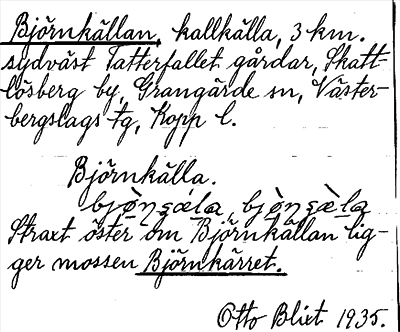 Björnkällan, kallkälla, 3 km.
sydväst Tatterfallet gårdar, Skatt-
lösberg by, Grangärde sn, Väster-
bergslags tg, Kopp l.
Björnkälla.
Straxt öster om Björnkällan lig-
ger mossen Björnkärret.
Otto Blixt 1935.